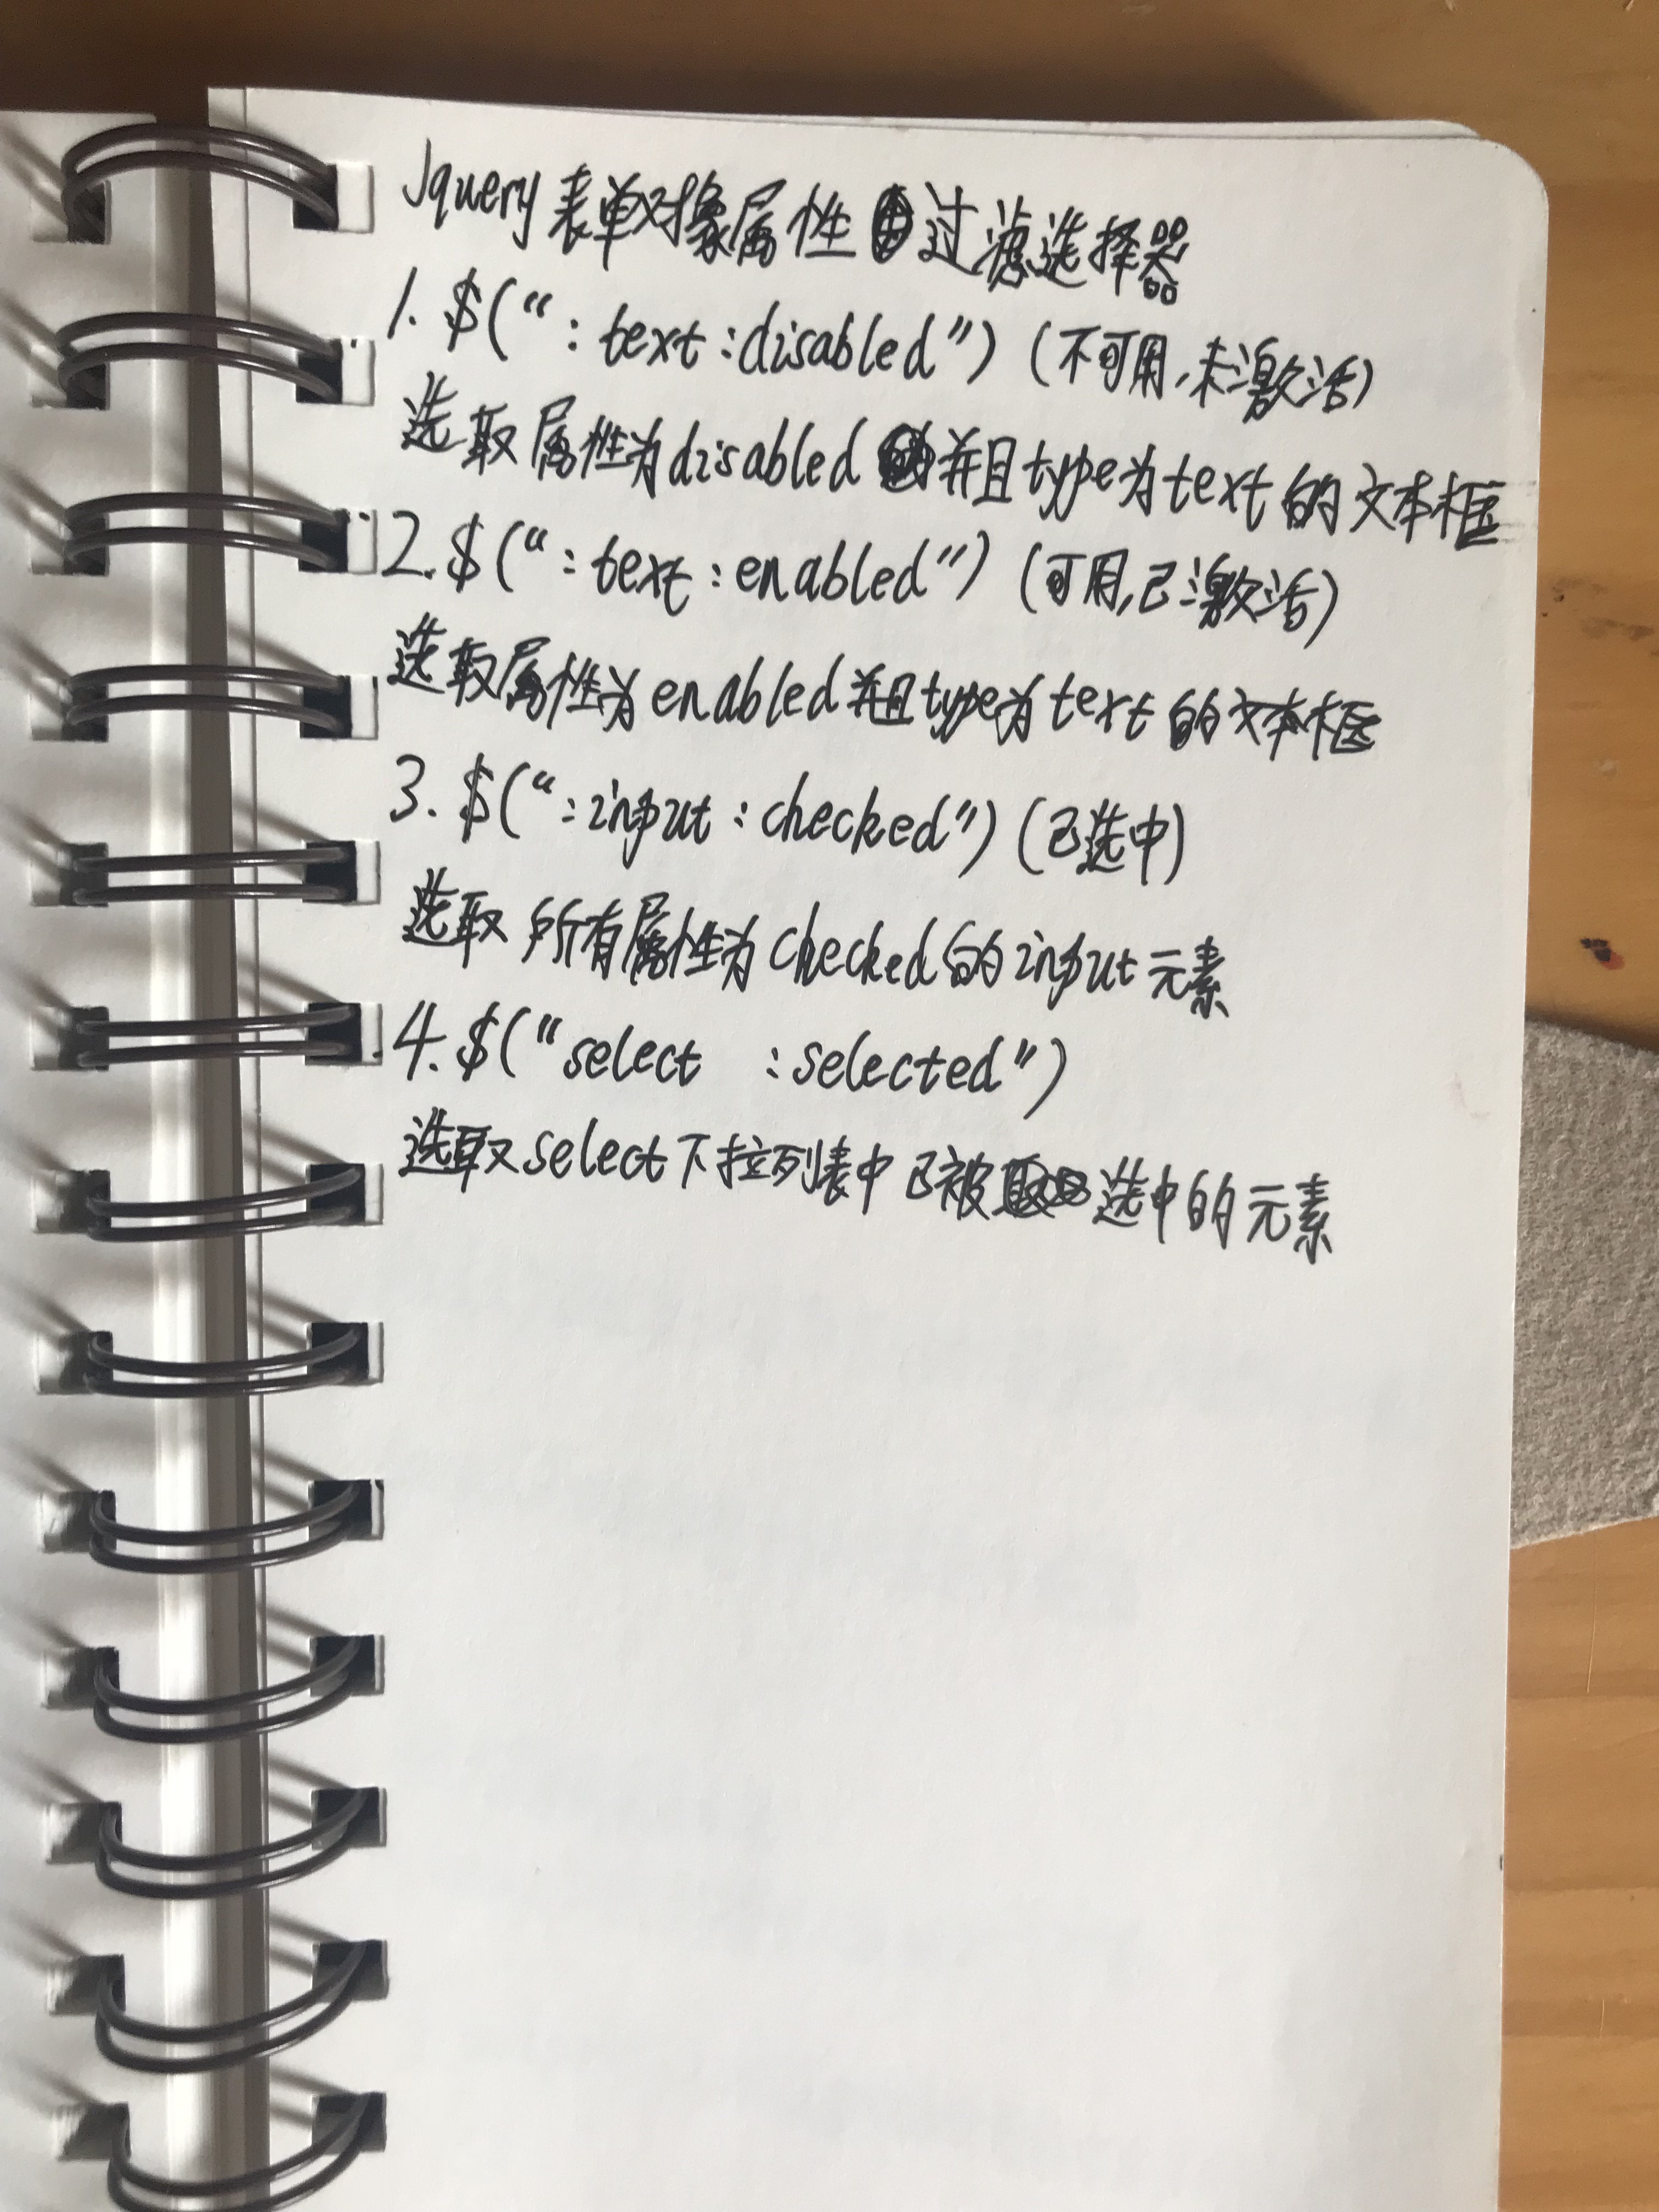 Jquery表单对象属性过滤选择器
1. $(“:text:disabled”) (不可用,未激活)
选取属性为disabled并且type为text的文本框
2. $(“:text:enabled”) (可用,已激活)
选取属性为enabled并且type为text的文本框
3. $(“:input:checked”) (已选中)
选取所有属性为checked的input元素
4. $(“select :selected”)
选取select下拉列表中已被选中的元素